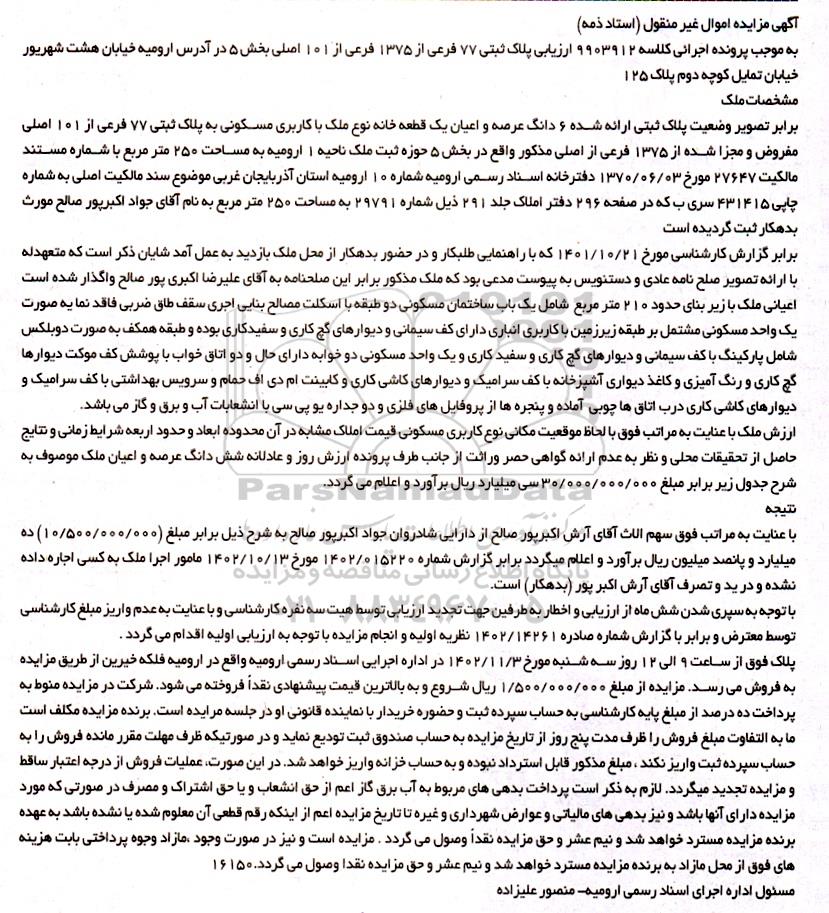 آگهی مزایده اموال غیر منقول (اسناد ذمه)
به موجب پرونده اجرائی کلاسه ۹۹۰۳۹۱۲ ارزیابی پلاک ثبتی ۷۷ فرعی از ۱۳۷۵ فرعی از ۱۰۱ اصلی بخش ۵ در آدرس ارومیه خیابان هشت شهریور
خیابان تمایل کوچه دوم پلاک ۱۲۵
مشخصات ملک
برابر تصویر وضعیت پلاک ثبتی ارائه شده ۶ دانگ عرصه و اعیان یک قطعه خانه نوع ملک با کاربری مسکونی به پلاک ثبتی ۷۷ فرعی از ۱۰۱ اصلی
مفروض و مجزا شده از ۱۳۷۵ فرعی از اصلی مذکور واقع در بخش ۵ حوزه ثبت ملک ناحیه ۱ ارومیه به مساحت ۲۵۰ متر مربع با شماره مستند
مالکیت ۲۷۶۴۷ مورخ ۱۳۷۰/۰۶/۰۳ دفترخانه اسناد رسمی ارومیه شماره ۱۰ ارومیه استان آذربایجان غربی موضوع سند مالکیت اصلی به شماره
چاپی ۴۳۱۴۱۵ سری ب که در صفحه ۲۹۶ دفتر املاک جلد ۲۹۱ ذیل شماره ۲۹۷۹۱ به مساحت ۲۵۰ متر مربع به نام آقای جواد اکبرپور صالح مورث
بدهکار ثبت گردیده است
برابر گزارش کارشناسی مورخ ۱۴۰۱/۱۰/۲۱ که با راهنمایی طلبکار و در حضور بدهکار از محل ملک بازدید به عمل آمد شایان ذکر است که متعهدله
با ارائه تصویر صلح نامه عادی و دستنویس به پیوست مدعی بود که ملک مذکور برابر این صلحنامه به آقای علیرضا اکبری پور صالح واگذار شده است
اعیانی ملک با زیر بنای حدود ۲۱۰ متر مربع شامل یک باب ساختمان مسکونی دو طبقه با اسکلت مصالح بنایی اجری سقف طاق ضربی فاقد نما به صورت
یک واحد مسکونی مشتمل بر طبقه زیرزمین با کاربری انباری دارای کف سیمانی و دیوارهای گچ کاری و سفیدکاری بوده و طبقه همکف به صورت دوبلکس
شامل پارکینگ با کف سیمانی و دیوارهای گچ کاری و سفید کاری و یک واحد مسکونی دو خوابه دارای حال و دو اتاق خواب با پوشش کف موکت دیوارها
گچ کاری و رنگ آمیزی و کاغذ دیواری آشپزخانه با کف سرامیک و دیوارهای کاشی کاری و کابینت ام دی اف حمام و سرویس بهداشتی با کف سرامیک و
دیوارهای کاشی کاری درب اتاق ها چوبی آماده و پنجره ها از پروفایل های فلزی و دو جداره یو پی سی با انشعابات آب و برق و گاز می باشد.
ارزش ملک با عنایت به مراتب فوق با لحاظ موقعیت مکانی نوع کاربری مسکونی قیمت املاک مشابه در آن محدوده ابعاد و حدود اربعه شرایط زمانی و نتایج
حاصل از تحقیقات محلی و نظر به عدم ارائه گواهی حصر وراثت از جانب طرف پرونده ارزش روز و عادلانه شش دانگ عرصه و اعیان ملک موصوف به
شرح جدول زیر برابر مبلغ ۳۰/۰۰۰/۰۰۰/۰۰۰ سی میلیارد ریال برآورد و اعلام می گردد.
نتیجه
با عنایت به مراتب فوق سهم الاث آقای آرش اکبرپور صالح از دارایی شادروان جواد اکبرپور صالح به شرح ذیل برابر مبلغ (۱۰/۵۰۰/۰۰۰/۰۰۰) ده
میلیارد و پانصد میلیون ریال برآورد و اعلام میگردد برابر گزارش شماره ۱۴۰۲/۰۱۵۲۲۰ مورخ ۱۴۰۲/۱۰/۱۳ مامور اجرا ملک به کسی اجاره داده
نشده و در ید و تصرف آقای آرش اکبر پور (بدهکار) است.
با توجه به سپری شدن شش ماه از ارزیابی و اخطار به طرفین جهت تجدید ارزیابی توسط هیت سه نفره کارشناسی و با عنایت به عدم واریز مبلغ کارشناسی
توسط معترض و برابر با گزارش شماره صادره ۱۴۰۲/۱۴۲۶۱ نظریه اولیه و انجام مزایده با توجه به ارزیابی اولیه اقدام می گردد .
پلاک فوق از ساعت ۹ الی ۱۲ روز سه شنبه مورخ ۱۴۰۲/۱۱/۳ در اداره اجرایی اسناد رسمی ارومیه واقع در ارومیه فلکه خیرین از طریق مزایده
به فروش می رسد. مزایده از مبلغ ۱/۵۰۰/۰۰۰/۰۰۰ ریال شروع و به بالاترین قیمت پیشنهادی نقداً فروخته می شود. شرکت در مزایده منوط به
پرداخت ده درصد از مبلغ پایه کارشناسی به حساب سپرده ثبت و حضوره خریدار با نماینده قانونی او در جلسه مرایده است. برنده مزایده مکلف است
ما به التفاوت مبلغ فروش را ظرف مدت پنج روز از تاریخ مزایده به حساب صندوق ثبت تودیع نماید و در صورتیکه ظرف مهلت مقرر مانده فروش را به
حساب سپرده ثبت واریز نکند ، مبلغ مذکور قابل استرداد نبوده و به حساب خزانه واریز خواهد شد. در این صورت، عملیات فروش از درجه اعتبار ساقط
و مزایده تجدید میگردد. لازم به ذکر است پرداخت بدهی های مربوط به آب برق گاز اعم از حق انشعاب و یا حق اشتراک و مصرف در صورتی که مورد
مزایده دارای آنها باشد و نیز بدهی های مالیاتی و عوارض شهرداری و غیره تا تاریخ مزایده اعم از اینکه رقم قطعی آن معلوم شده یا نشده باشد به عهده
برنده مزایده مسترد خواهد شد و نیم عشر و حق مزایده نقداً وصول می گردد . مزایده است و نیز در صورت وجود ،مازاد وجوه پرداختی بابت هزینه
های فوق از محل مازاد به برنده مزایده مسترد خواهد شد و نیم عشر و حق مزایده نقدا وصول می گردد.۱۶۱۵۰
مسئول اداره اجرای اسناد رسمی ارومیه- منصور علیزاده
ParsNamadData
پایگاه اطلاع رسانی مناقصه و مزایده
۰۲۱-۸۸۳۴۹۶۷۰-۵